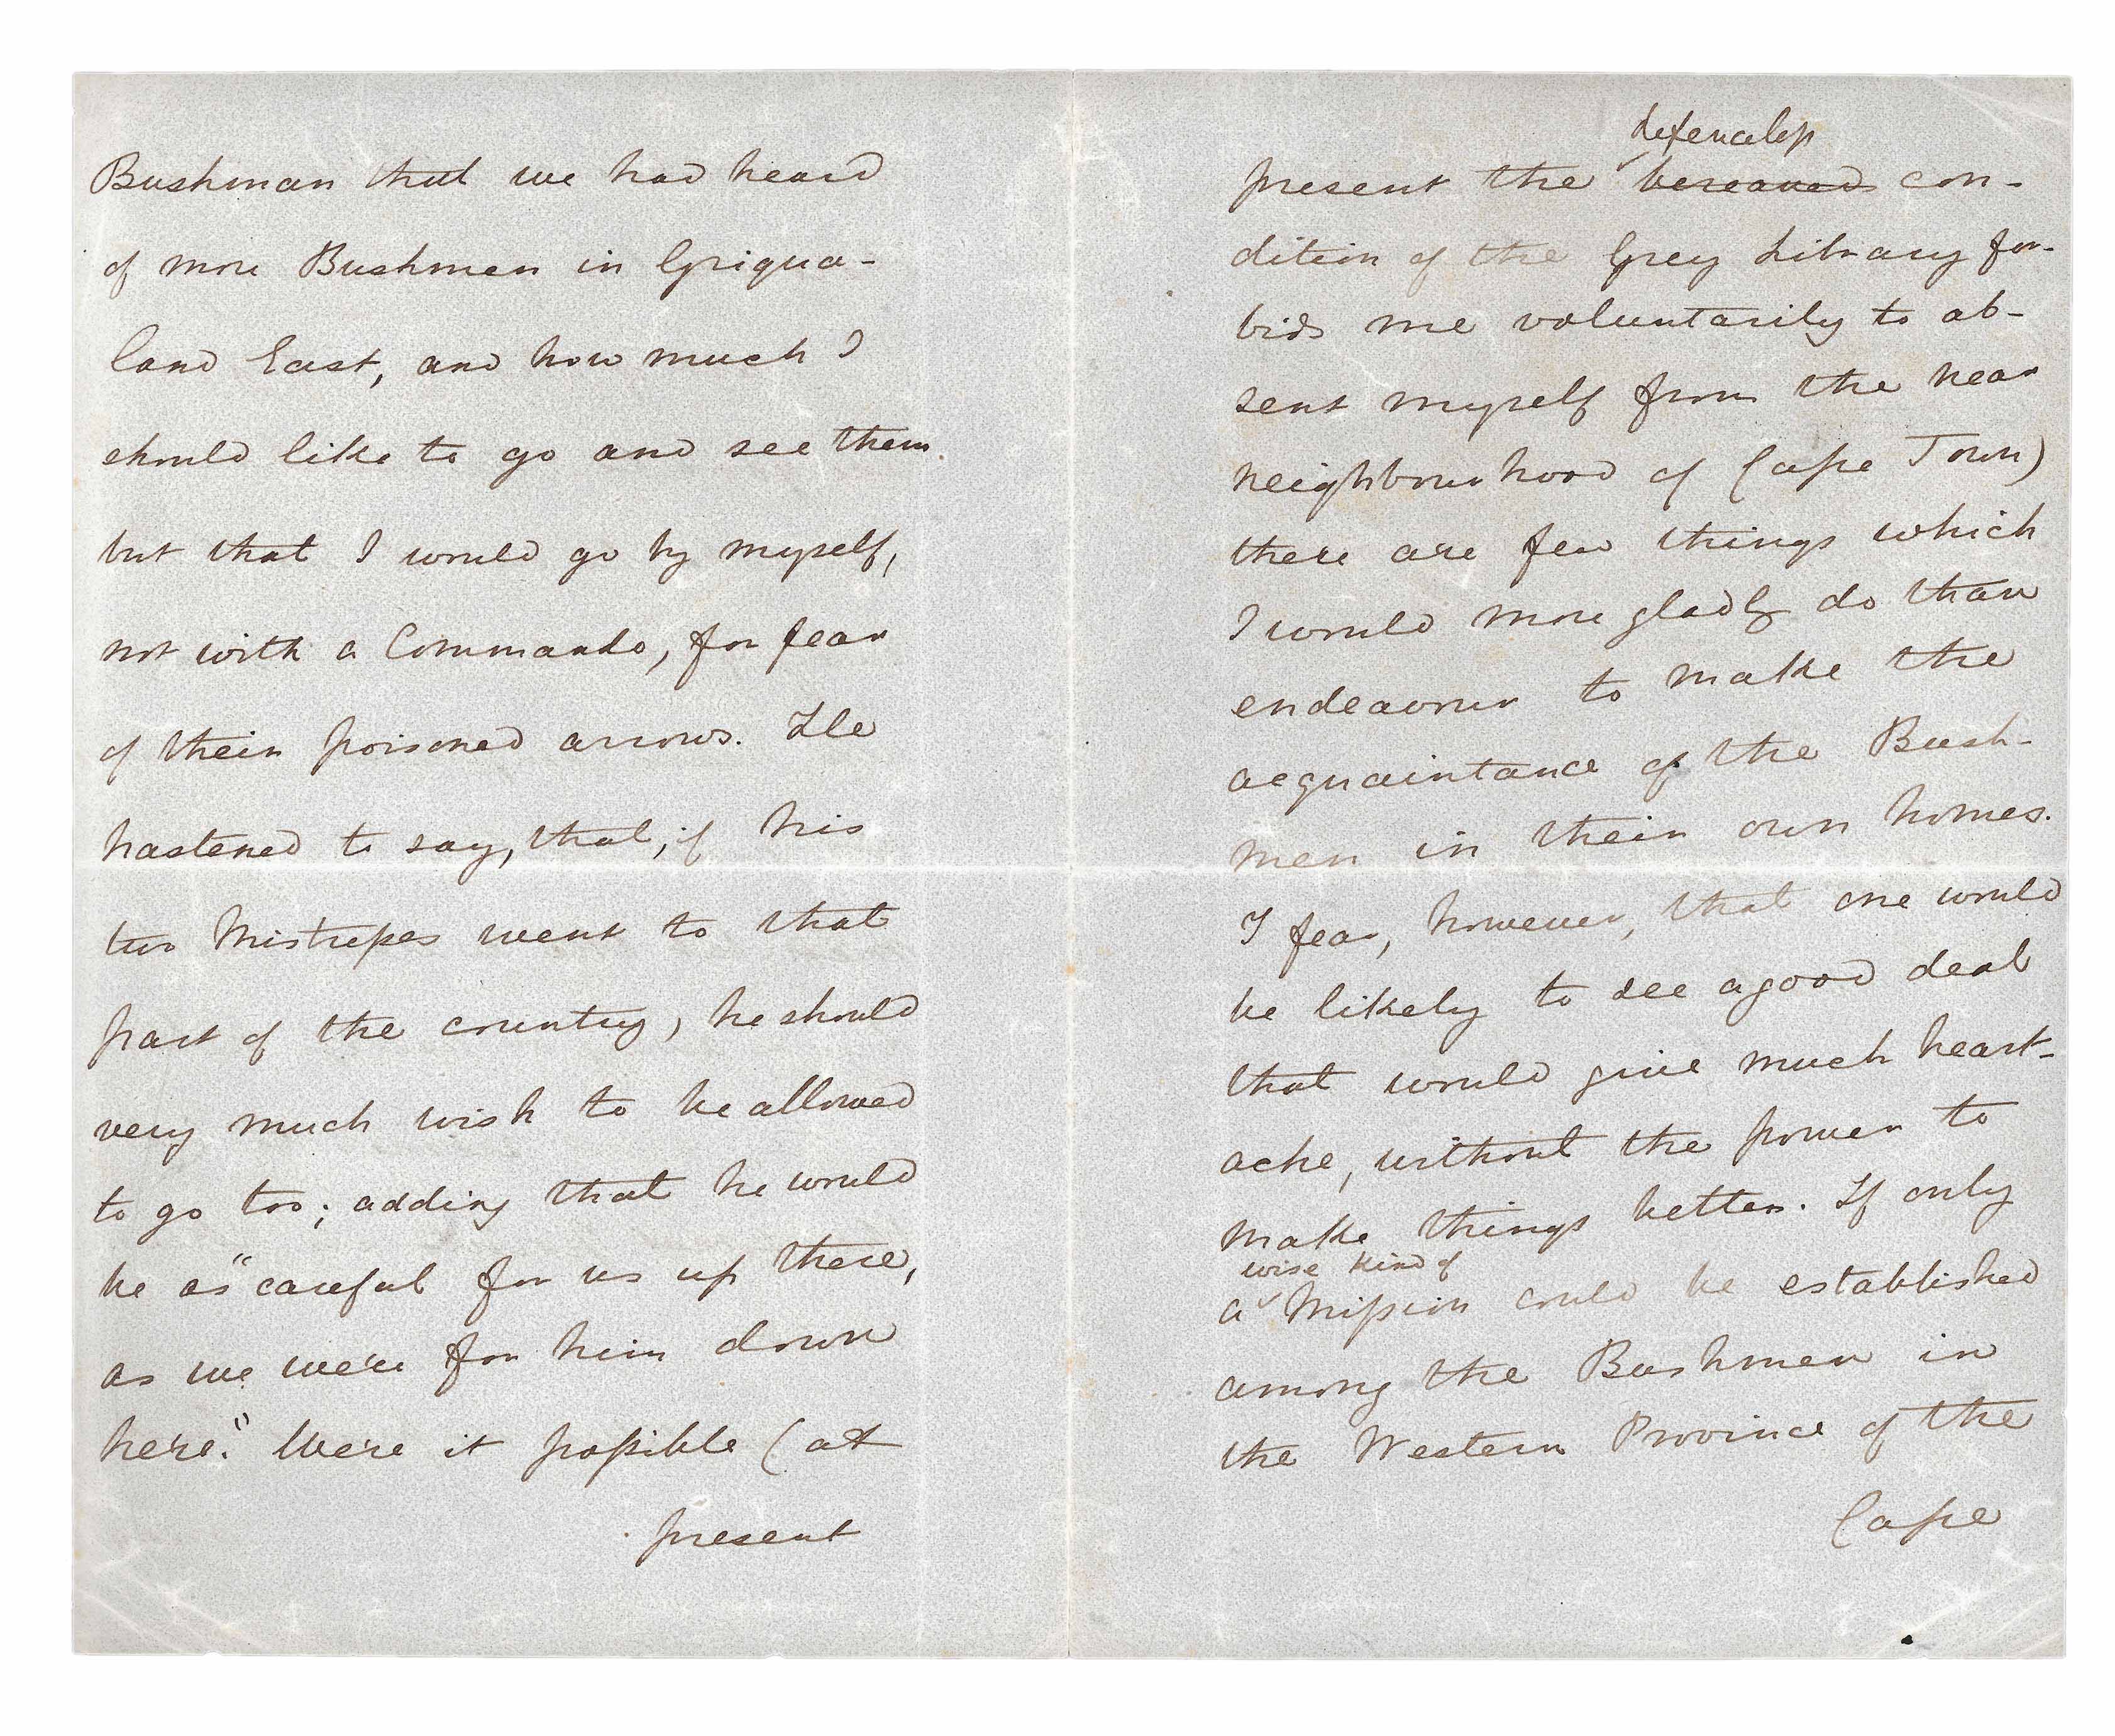 Bushman that we had heard
of more Bushmen in Griqua-
land East, and how much I
should like to go and see them.
but that I would go by myself,
not with a Commando, for fear
of their poisoned arrows. He
hastened to say, that, if his
two Mistresses went to that
part of the country, he should
very much wish to be allowed
to go too; adding that he would
be as "careful for us up there,
as we were for him down
here." Were it possible (at
present
defenceless
present the bereaved con-
dition of the Grey Library for-
bids me voluntarily to ab-
sent myself from the near
neighbourhood of Cape Town)
there are few things which
I would more gladly do than
endeavour to make the
acquaintance of the Bush-
men in their own homes.
I fear, however, that one would
be likely to see a good deal
that would give much heart-
ache, without the power to
make things better. If only
wise kind of
a Mission could be established
among the Bushmen in
the Western Province of the
Cape